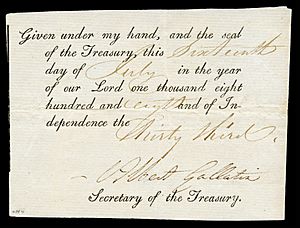 Given under my hand, and the seal
of the Treasury, this Sixteenth
day of July in the year
of our Lord one thousand eight
hundred and eight and of In-
dependence the
Thirty third.
Albert Gallatin
Secretary of the Treasury.